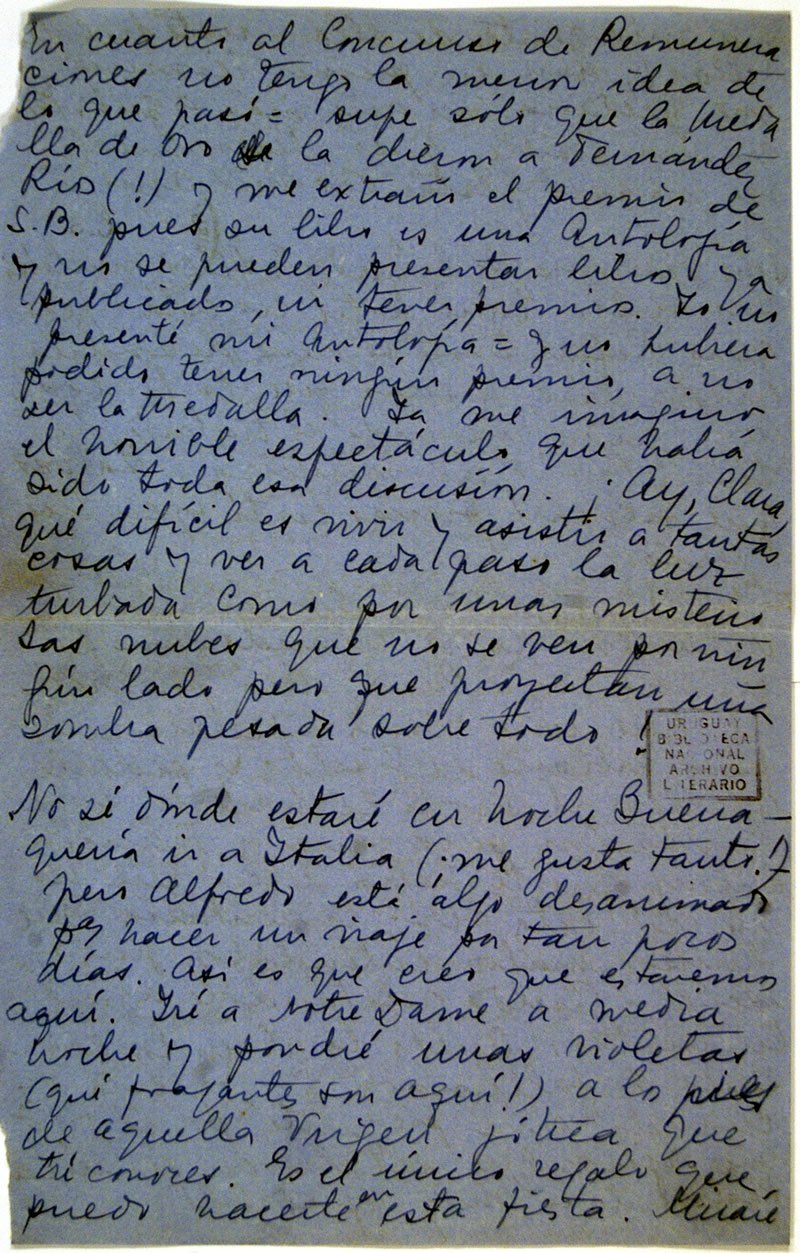 En cuanto al Concurso de Remunera
ciones no tengo la menor idea de
lo que pasó = supe sólo que la Meda
lla de Oro se la dieron a Fernández
Ríos (!) y me extrañó el premio de
S.B. pues su libro es una Antología
y no se pueden presentar libros ya
publicados, ni tener premios. Yo no
presenté mi Antología = y no hubiera
podido tener ningún premio, a no
ser la Medalla. Ya me imagino
el horrible espectáculo que habrá
sido toda esa discusión. ¡Ay, Clara,
qué difícil es vivir y asistir a tantas
cosas y ver a cada paso la luz
turbada como por unas misterio
sas nubes que no se ven por nin
gún lado pero que proyectan una
sombra pesada sobre todo!
URUGUAY
BIBLIOTECA
NACIONAL
ARCHIVO
LITERARIO
No sé dónde estaré en Noche Buena —
quería ir a Italia (¡me gusta tanto!)
pero Alfredo está algo desanimado
pa hacer un viaje por tan pocos
días. Así es que creo que estaremos
aquí. Iré a Notre Dame a media
noche y pondré unas violetas
(qué fragantes son aquí!) a los pies
de aquella Virgen gótica que
tú conoces. Es el único regalo que
puedo hacerte en esta fiesta. Miraré